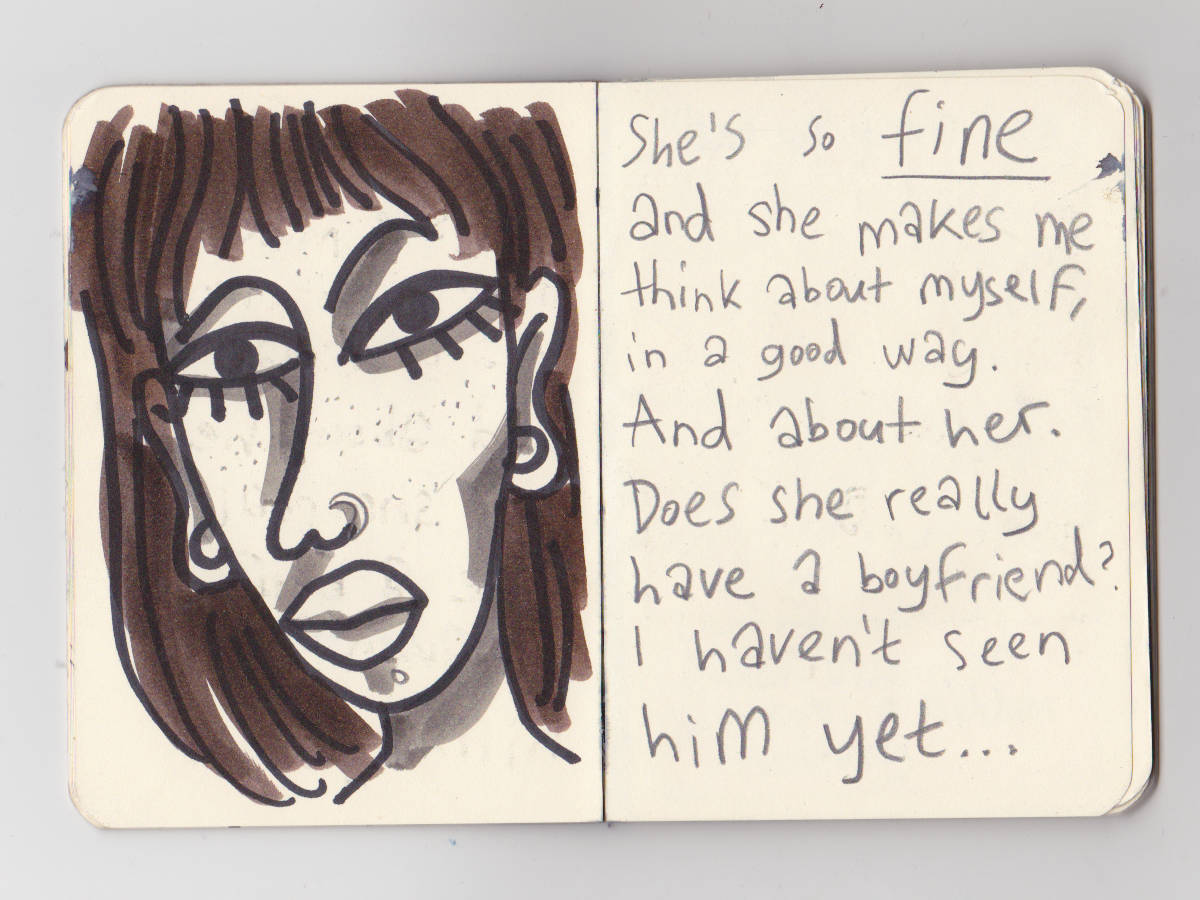 She's so fine
and she makes me
think about myself,
in a good way.
And about her.
Does she really
have a boyfriend?
I haven't seen
him yet...